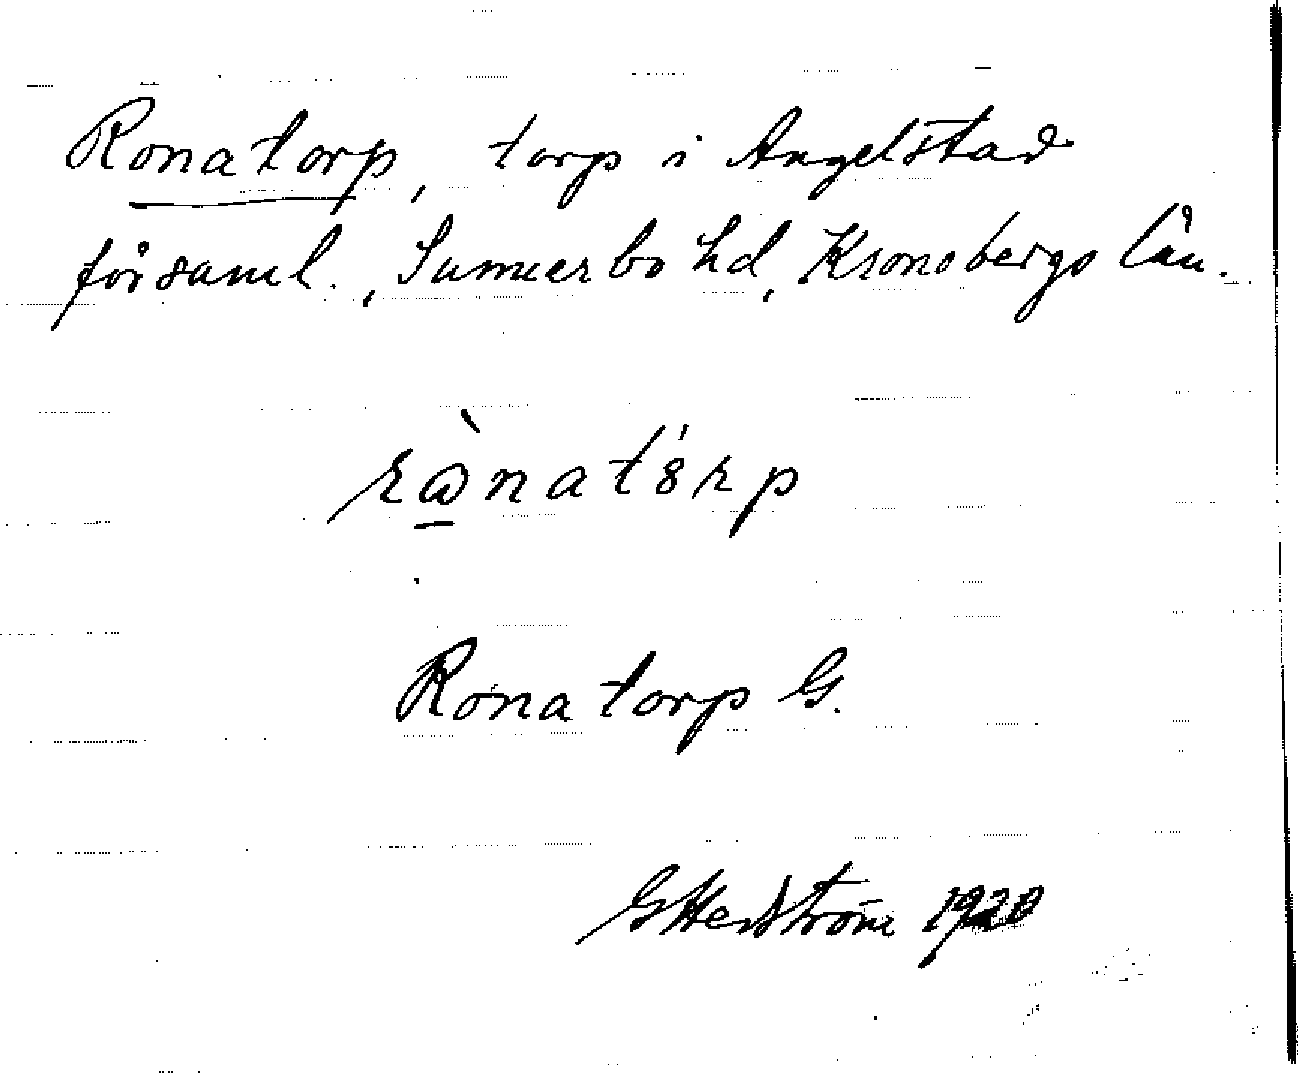 Ronatorp, torp i Angelstad
församl., Sunnerbo hd, Kronobergs län.
Ronatorp G.
G Hedström 1920